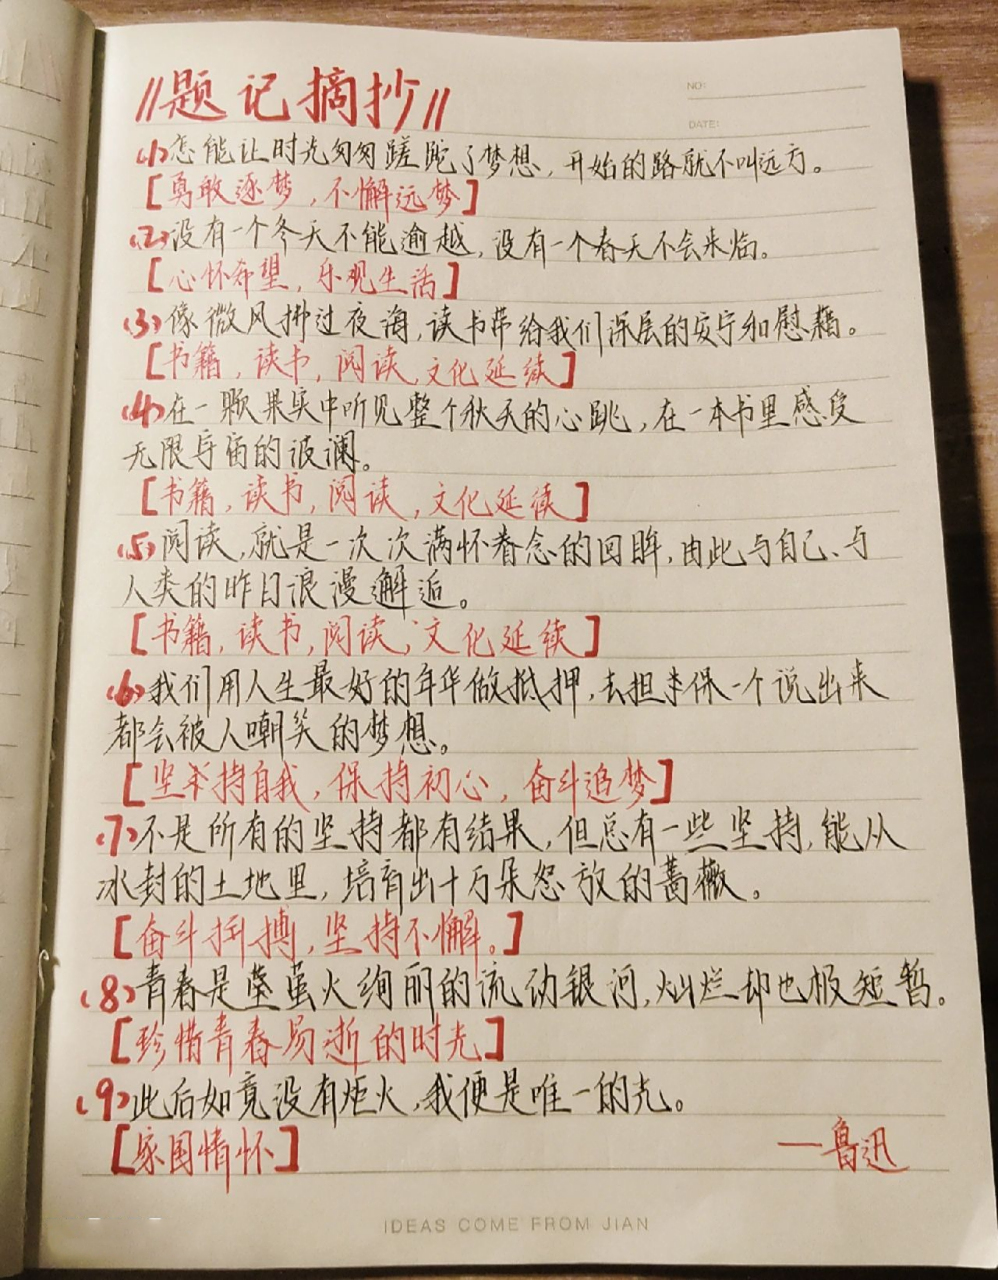 //题记摘抄//
NO:
DATE:
(1)怎能让时光匆匆蹉跎了梦想，开始的路就不叫远方。
[勇敢逐梦，不懈远梦]
(2)没有一个冬天不能逾越，没有一个春天不会来临。
[心怀希望，乐观生活]
(3)像微风拂过夜海，读书带给我们深层的安宁和慰藉。
[书籍，读书，阅读，文化延续]
(4)在一颗果实中听见整个秋天的心跳，在一本书里感受
无限宇宙的波澜。
[书籍，读书，阅读，文化延续]
(5)阅读，就是一次次满怀眷念的回眸，由此与自己、与
人类的昨日浪漫邂逅。
[书籍，读书，阅读，文化延续]
(6)我们用人生最好的年华做抵押，去担保一个说出来
都会被人嘲笑的梦想。
[坚持自我，保持初心，奋斗追梦]
(7)不是所有的坚持都有结果，但总有一些坚持，能从
冰封的土地里，培育出十万朵怒放的蔷薇。
[奋斗拼搏，坚持不懈。]
(8)青春是萤萤火绚丽的流动银河，灿烂却也极短暂。
[珍惜青春易逝的时光]
(9)此后如竟没有炬火，我便是唯一的光。
[家国情怀]
—鲁迅
IDEAS COME FROM JIAN